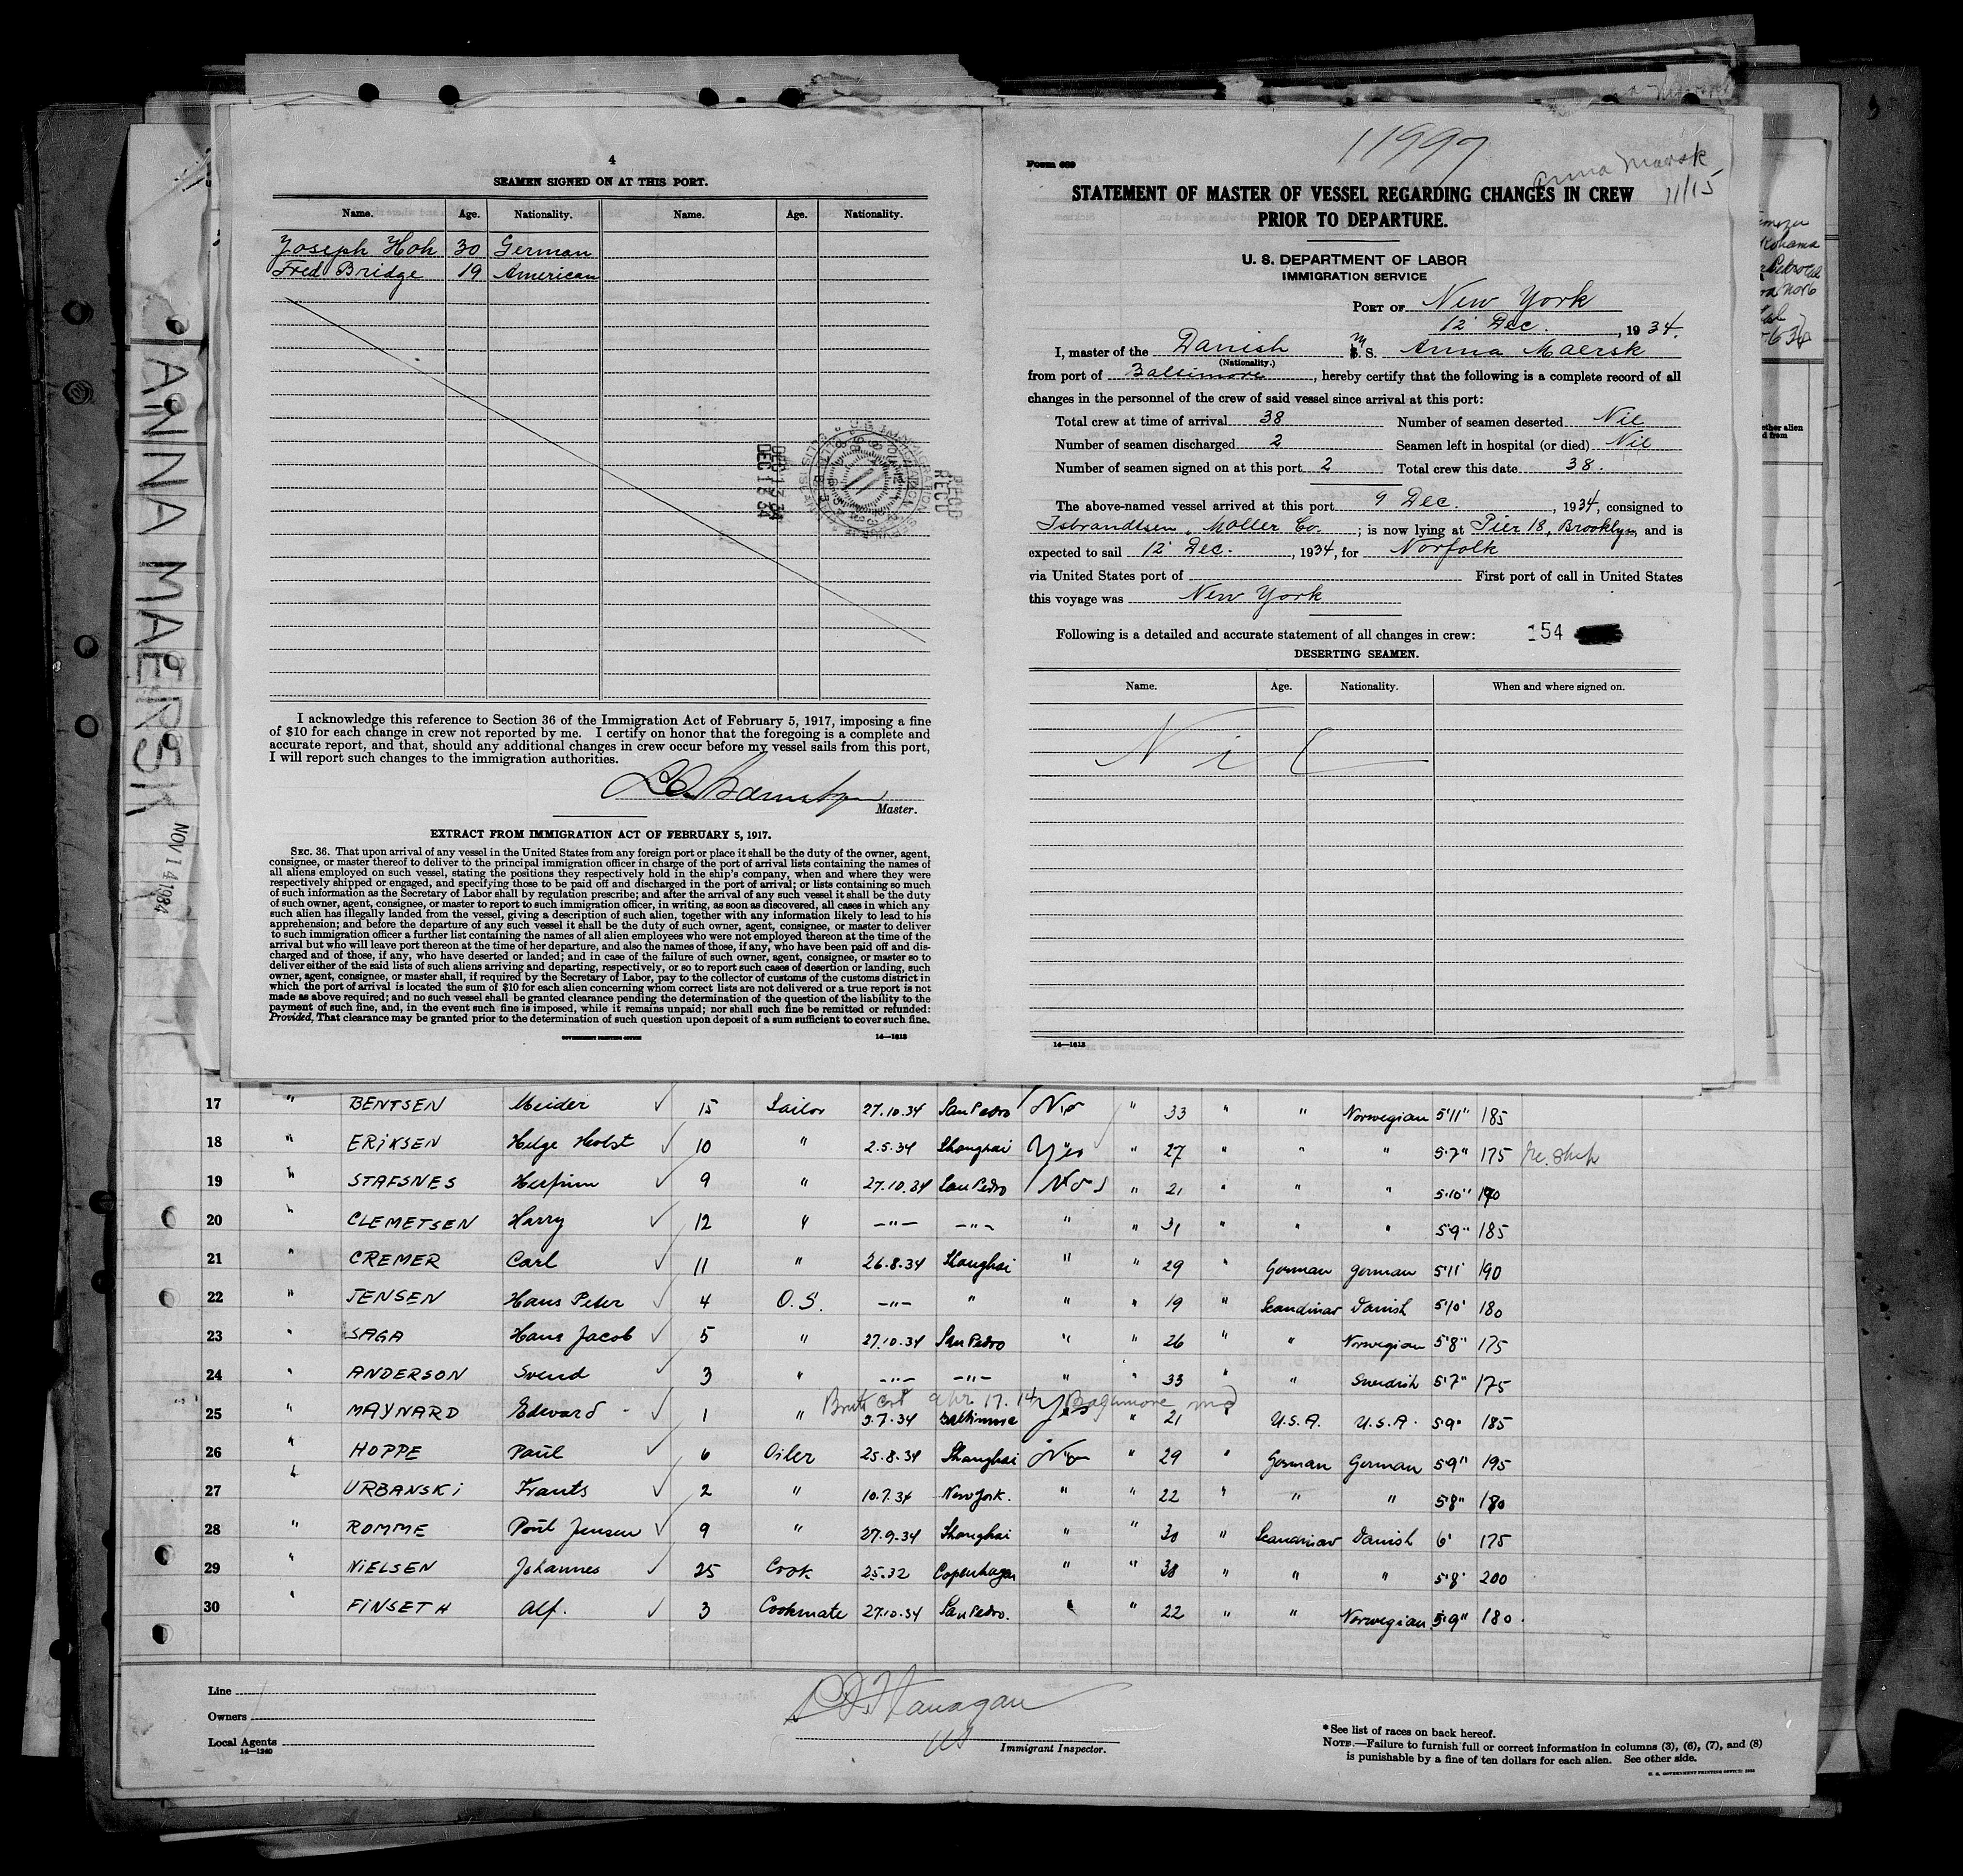 4
SEAMEN SIGNED ON AT THIS PORT.
Name. Age. Nationality. Name. Age. Nationality.
Joseph Hoh 30 German
Fred Bridge 19 American
DEC 13 34
RECD
I acknowledge this reference to Section 36 of the Immigration Act of February 5, 1917, imposing a fine
of $10 for each change in crew not reported by me. I certify on honor that the foregoing is a complete and
accurate report, and that, should any additional changes in crew occur before my vessel sails from this port,
I will report such changes to the immigration authorities.
Master.
EXTRACT FROM IMMIGRATION ACT OF FEBRUARY 5, 1917.
SEC. 36. That upon arrival of any vessel in the United States from any foreign port or place it shall be the duty of the owner, agent,
consignee, or master thereof to deliver to the principal immigration officer in charge of the port of arrival lists containing the names of
all aliens employed on such vessel, stating the positions they respectively hold in the ship's company, when and where they were
respectively shipped or engaged, and specifying those to be paid off and discharged in the port of arrival; or lists containing so much
of such information as the Secretary of Labor shall by regulation prescribe; and after the arrival of any such vessel it shall be the duty
of such owner, agent, consignee, or master to report to such immigration officer, in writing, as soon as discovered, all cases in which any
such alien has illegally landed from the vessel, giving a description of such alien, together with any information likely to lead to his
apprehension; and before the departure of any such vessel it shall be the duty of such owner, agent, consignee, or master to deliver
to such immigration officer a further list containing the names of all alien employees who were not employed thereon at the time of the
arrival but who will leave port thereon at the time of her departure, and also the names of those, if any, who have been paid off and dis-
charged and of those, if any, who have deserted or landed; and in case of the failure of such owner, agent, consignee, or master so to
deliver either of the said lists of such aliens arriving and departing, respectively, or so to report such cases of desertion or landing, such
owner, agent, consignee, or master shall, if required by the Secretary of Labor, pay to the collector of customs of the customs district in
which the port of arrival is located the sum of $10 for each alien concerning whom correct lists are not delivered or a true report is not
made as above required; and no such vessel shall be granted clearance pending the determination of the question of the liability to the
payment of such fine, and, in the event such fine is imposed, while it remains unpaid; nor shall such fine be remitted or refunded:
Provided, That clearance may be granted prior to the determination of such question upon deposit of a sum sufficient to cover such fine.
GOVERNMENT PRINTING OFFICE 14—1613
11997
Anna Maersk
11/15
Form 689
STATEMENT OF MASTER OF VESSEL REGARDING CHANGES IN CREW
PRIOR TO DEPARTURE.
U. S. DEPARTMENT OF LABOR
IMMIGRATION SERVICE
PORT OF New York
12 Dec. , 1934.
I, master of the Danish M S. Anna Maersk
(Nationality.)
from port of Baltimore, hereby certify that the following is a complete record of all
changes in the personnel of the crew of said vessel since arrival at this port:
Total crew at time of arrival 38 Number of seamen deserted Nil
Number of seamen discharged 2 Seamen left in hospital (or died) Nil
Number of seamen signed on at this port 2 Total crew this date 38.
The above-named vessel arrived at this port 9 Dec. , 1934, consigned to
Isbrandtsen Moller Co. ; is now lying at Pier 18, Brooklyn, and is
expected to sail 12 Dec. , 1934, for Norfolk
via United States port of First port of call in United States
this voyage was New York
Following is a detailed and accurate statement of all changes in crew: 154
DESERTING SEAMEN.
Name. Age. Nationality. When and where signed on.
Nil
14—1613
ANNA MAERSK
NOV 14 1934
17 " BENTSEN Meider ✓ 15 Sailor 27.10.34 San Pedro No " 33 " " Norwegian 5'11" 185
18 " ERIKSEN Helge Holst ✓ 10 " 2.5.34 Shanghai Yes " 27 " " " 5'7" 175
19 " STAFSNES Herfinn ✓ 9 " 27.10.34 San Pedro No " 21 " " " 5'10" 190
20 " CLEMETSEN Harry ✓ 12 " —"— —"— " " 31 " " " 5'9" 185
21 " CREMER Carl ✓ 11 " 26.8.34 Shanghai " " 29 " German German 5'11" 190
22 " JENSEN Hans Peter ✓ 4 O.S. —"— " " " 19 " Scandinav Danish 5'10" 180
23 " SAGA Hans Jacob ✓ 5 " 27.10.34 San Pedro " " 26 " " Norwegian 5'8" 175
24 " ANDERSON Svend ✓ 3 " —"— —"— " " 33 " " Swedish 5'7" 175
Birth Cert Apr 17. 14 Baltimore Md
25 " MAYNARD Edward ✓ 1 " 5.7.34 Baltimore Yes " 21 " U.S.A. U.S.A. 5'9" 185
26 " HOPPE Paul ✓ 6 Oiler 25.8.34 Shanghai No " 29 " German German 5'9" 195
27 " URBANSKI Frants ✓ 2 " 10.7.34 New York. " " 22 " " " 5'8" 180
28 " ROMME Poul Jensen ✓ 9 " 27.9.34 Shanghai " " 30 " Scandinav Danish 6' 175
29 " NIELSEN Johannes ✓ 25 Cook 25.32 Copenhagen " " 38 " " " 5'8" 200
30 " FINSETH Alf. ✓ 3 Cookmate 27.10.34 San Pedro. " " 22 " " Norwegian 5'9" 180.
Line
Owners
Local Agents
14—1240
Flanagan
Immigrant Inspector.
*See list of races on back hereof.
NOTE.—Failure to furnish full or correct information in columns (3), (6), (7), and (8)
is punishable by a fine of ten dollars for each alien. See other side.